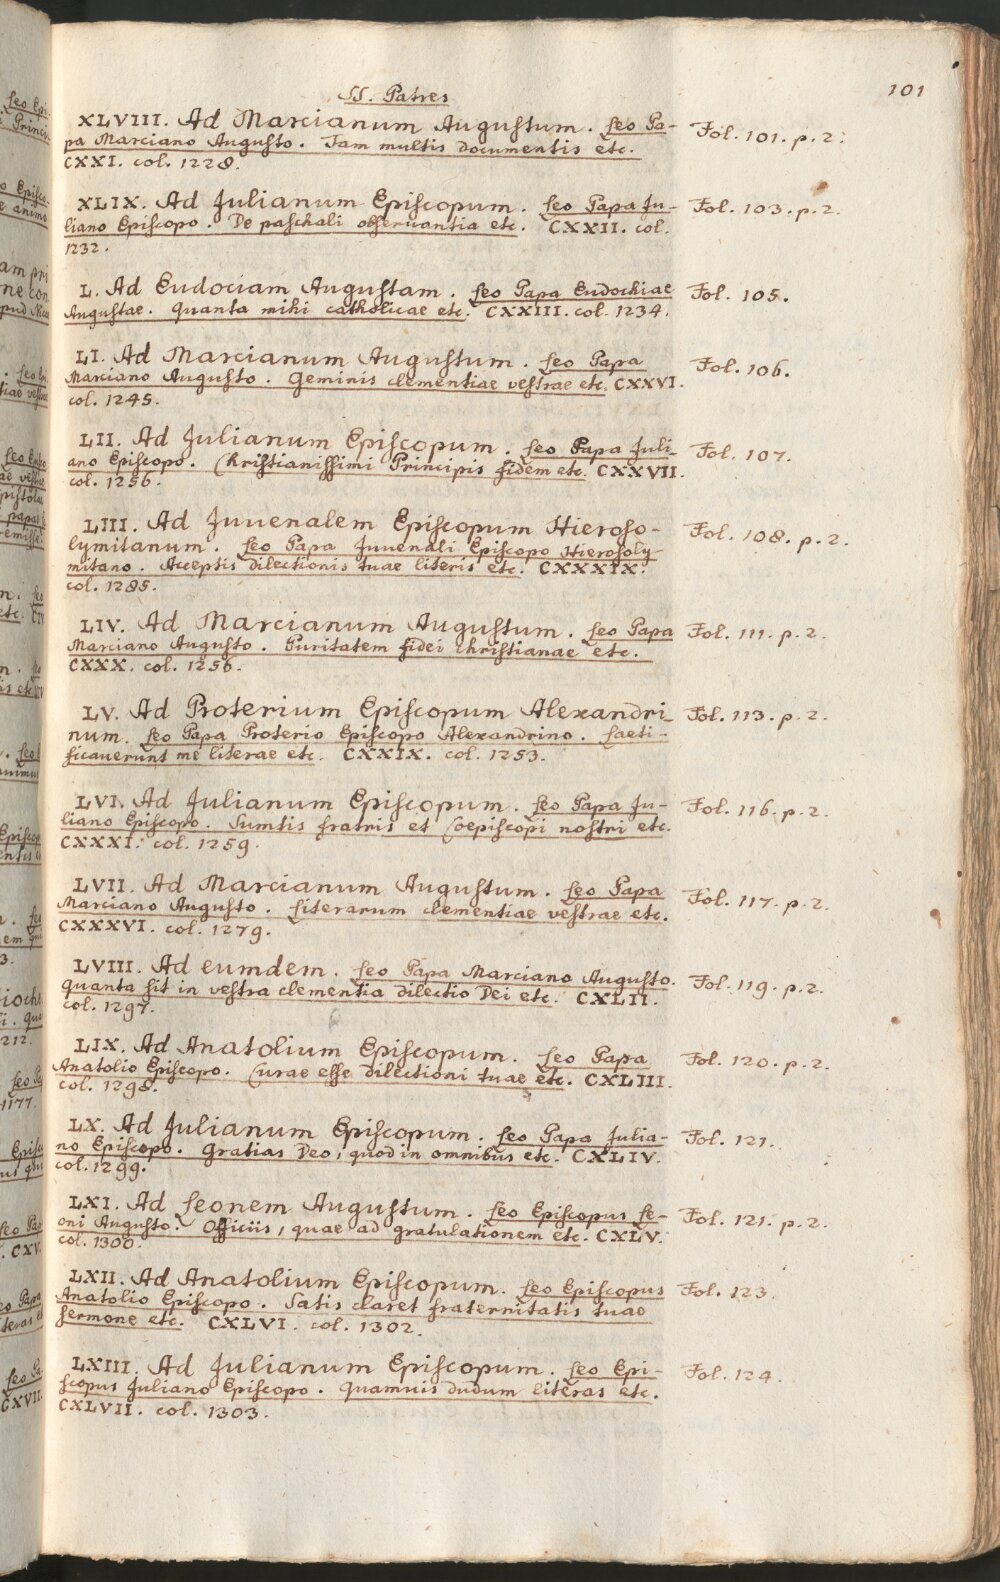 101
SS. Patres
XLVIII. Ad Marcianum Augustum. Leo Pa- Fol. 101. p. 2.
pa Marciano Augusto. Tam multis documentis etc.
CXXI. col. 1228.
XLIX. Ad Julianum Episcopum. Leo Papa Ju- Fol. 103. p. 2.
liano Episcopo. De paschali observantia etc. CXXII. col.
1232.
L. Ad Eudociam Augustam. Leo Papa Eudochiae Fol. 105.
Augustae. Quanta mihi catholicae etc. CXXIII. col. 1234.
LI. Ad Marcianum Augustum. Leo Papa Fol. 106.
Marciano Augusto. Geminis clementiae vestrae etc. CXXVI.
col. 1245.
LII. Ad Julianum Episcopum. Leo Papa Juli- Fol. 107.
ano Episcopo. Christianissimi Principis fidem etc. CXXVII.
col. 1256.
LIII. Ad Juuenalem Episcopum Hieroso- Fol. 108. p. 2.
lymitanum. Leo Papa Juuenali Episcopo Hierosoly-
mitano. Acceptis dilectionis tuae literis etc. CXXXIX.
col. 1285.
LIV. Ad Marcianum Augustum. Leo Papa Fol. 111. p. 2.
Marciano Augusto. Puritatem fidei christianae etc.
CXXX. col. 1256.
LV. Ad Proterium Episcopum Alexandri- Fol. 113. p. 2.
num. Leo Papa Proterio Episcopo Alexandrino. Laeti-
ficauerunt me literae etc. CXXIX. col. 1253.
LVI. Ad Julianum Episcopum. Leo Papa Ju- Fol. 116. p. 2.
liano Episcopo. Sumtis fratris et Coepiscopi nostri etc.
CXXXI. col. 1259.
LVII. Ad Marcianum Augustum. Leo Papa Fol. 117. p. 2.
Marciano Augusto. Literarum clementiae vestrae etc.
CXXXVI. col. 1279.
LVIII. Ad eumdem. Leo Papa Marciano Augusto. Fol. 119. p. 2.
Quanta sit in vestra clementia dilectio Dei etc. CXLII.
col. 1297.
LIX. Ad Anatolium Episcopum. Leo Papa Fol. 120. p. 2.
Anatolio Episcopo. Curae esse dilectioni tuae etc. CXLIII.
col. 1298.
LX. Ad Julianum Episcopum. Leo Papa Julia- Fol. 121.
no Episcopo. Gratias Deo, quod in omnibus etc. CXLIV.
col. 1299.
LXI. Ad Leonem Augustum. Leo Episcopus Le- Fol. 121. p. 2.
oni Augusto. Officiis, quae ad gratulationem etc. CXLV.
col. 1300.
LXII. Ad Anatolium Episcopum. Leo Episcopus Fol. 123.
Anatolio Episcopo. Satis claret fraternitatis tuae
sermone etc. CXLVI. col. 1302.
LXIII. Ad Julianum Episcopum. Leo Epi- Fol. 124.
scopus Juliano Episcopo. Quamuis dudum literas etc.
CXLVII. col. 1303.